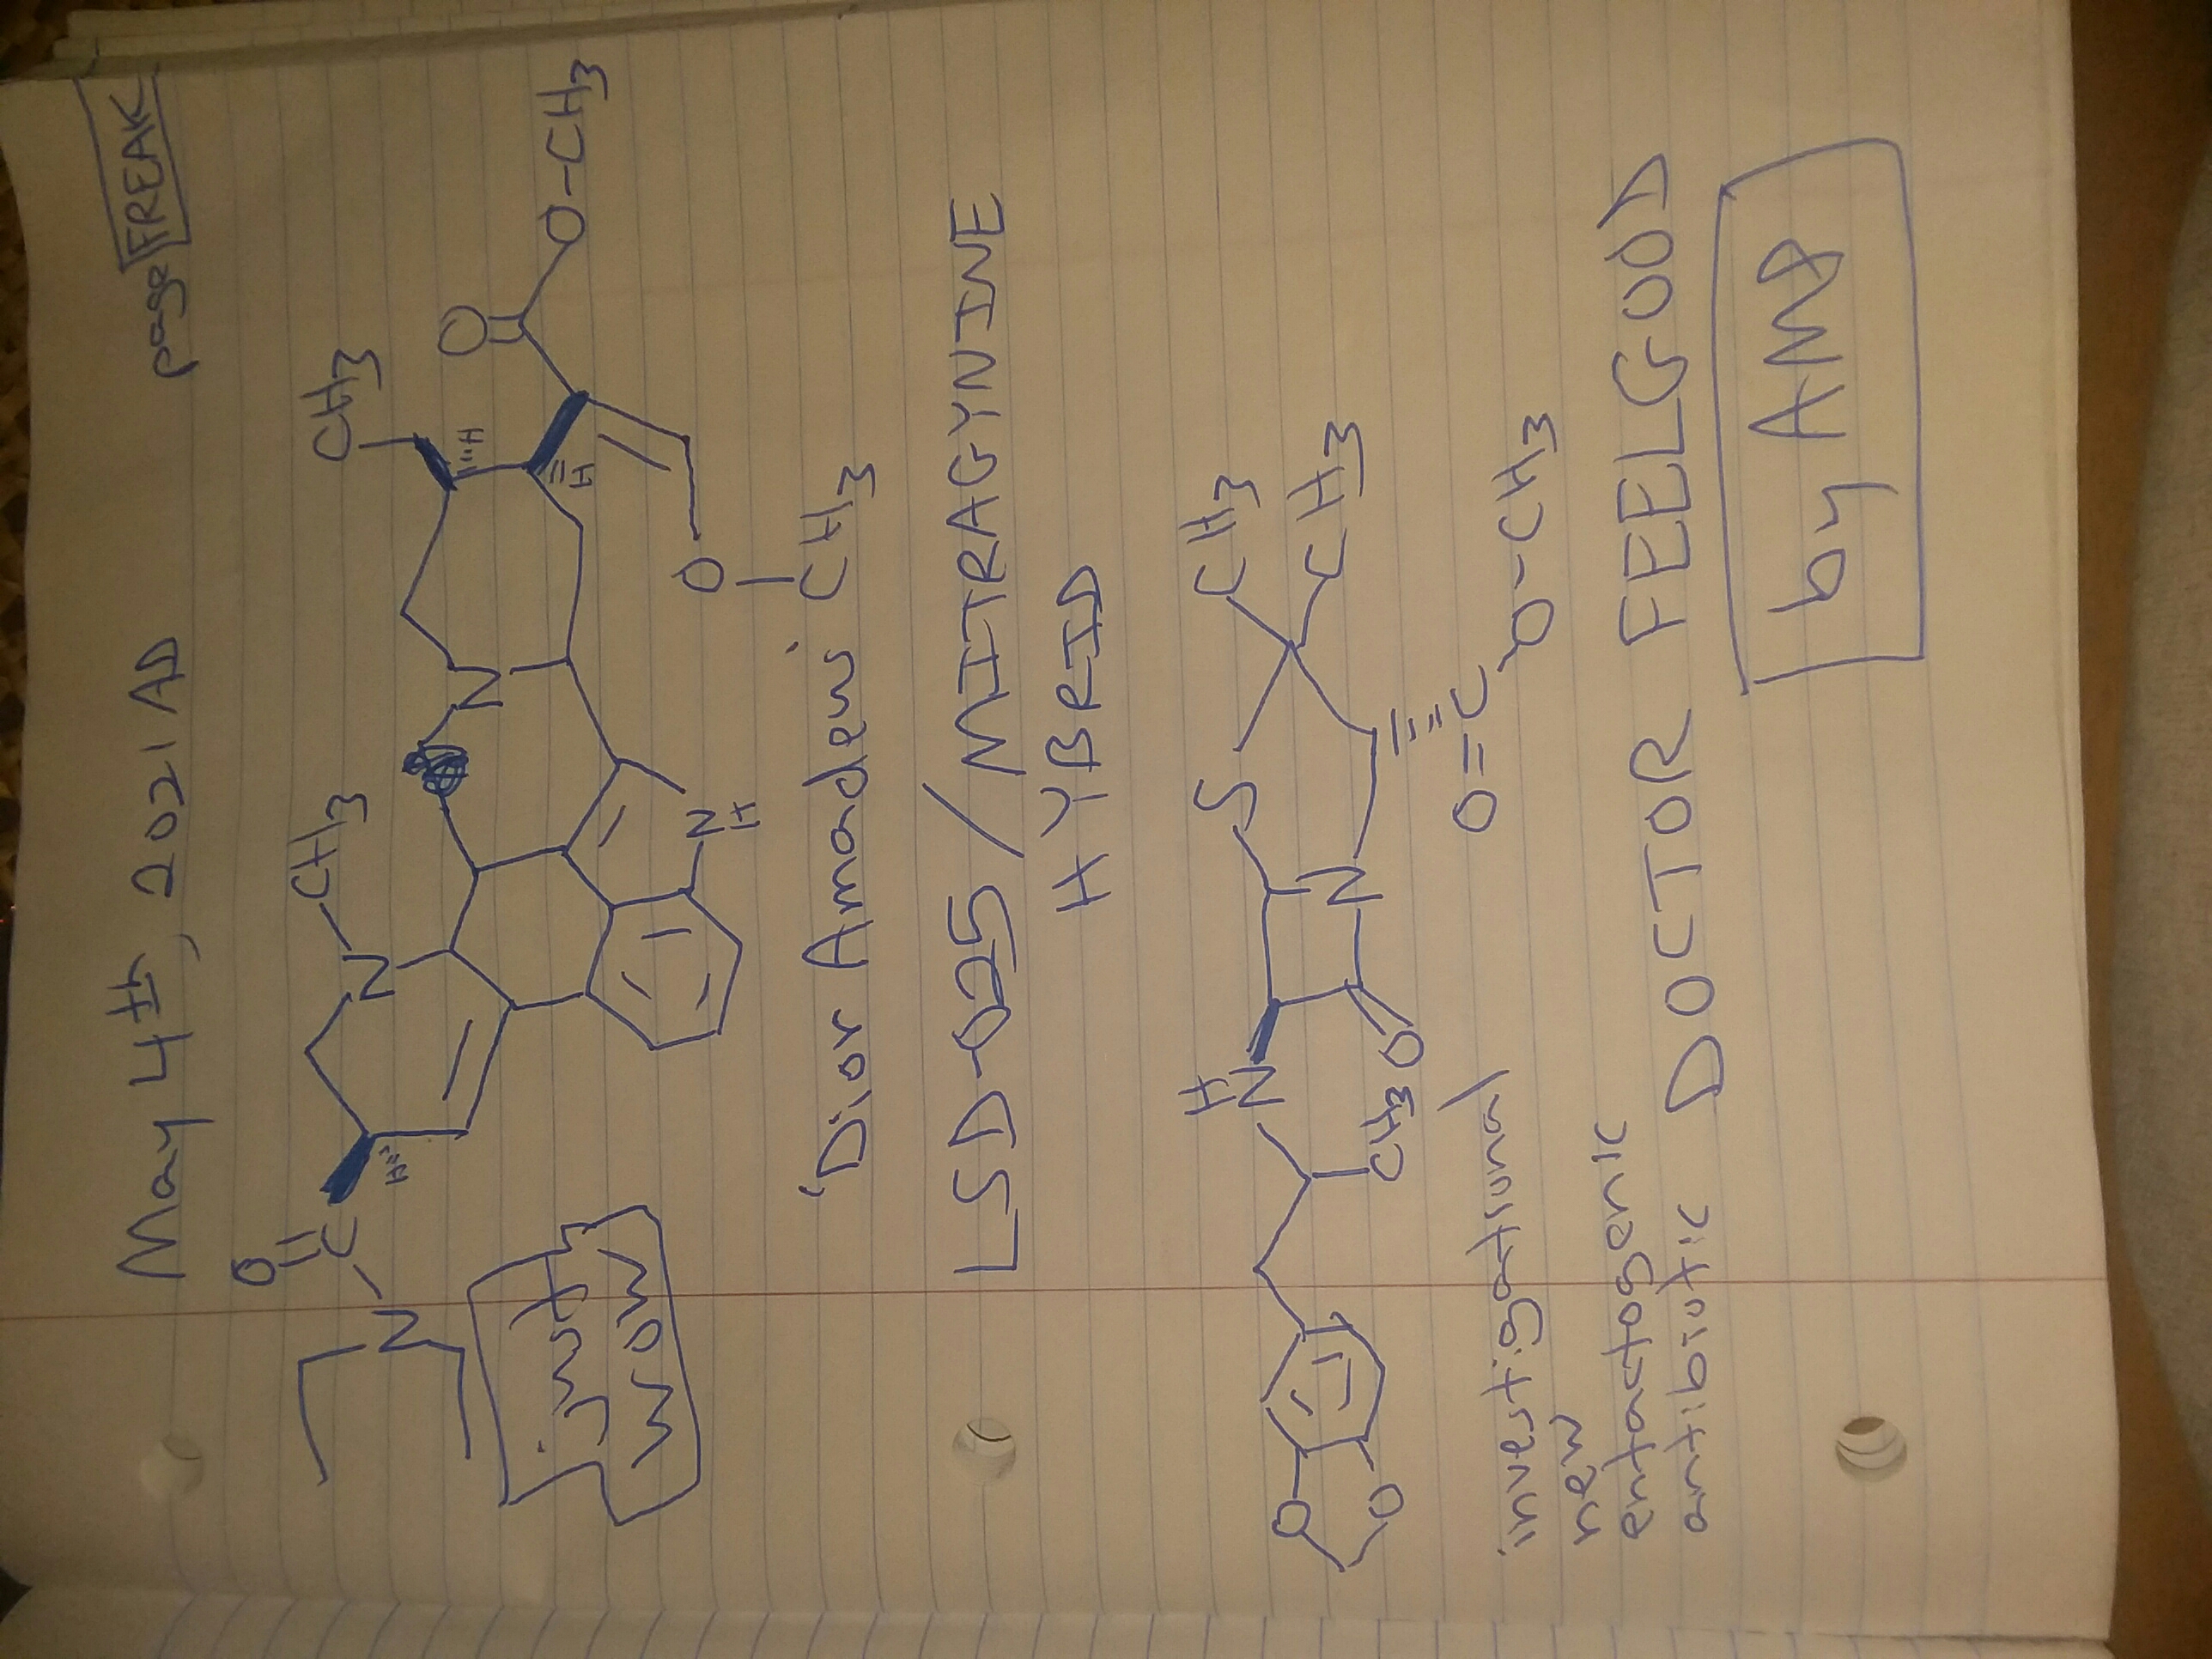 May 4th, 2021 AD page FREAK
O
C
N
H
N
CH3
N
CH3
H
H
O
O-CH3
O
CH3
N
H
just
wow
'Dior Amadeus'
LSD-025/MITRAGYNINE
HYBRID
O
O
H
N
CH3
O
S
N
CH3
CH3
O=C
O-CH3
investigational
new
entactogenic
antibiotic DOCTOR FEELGOOD
by AMP